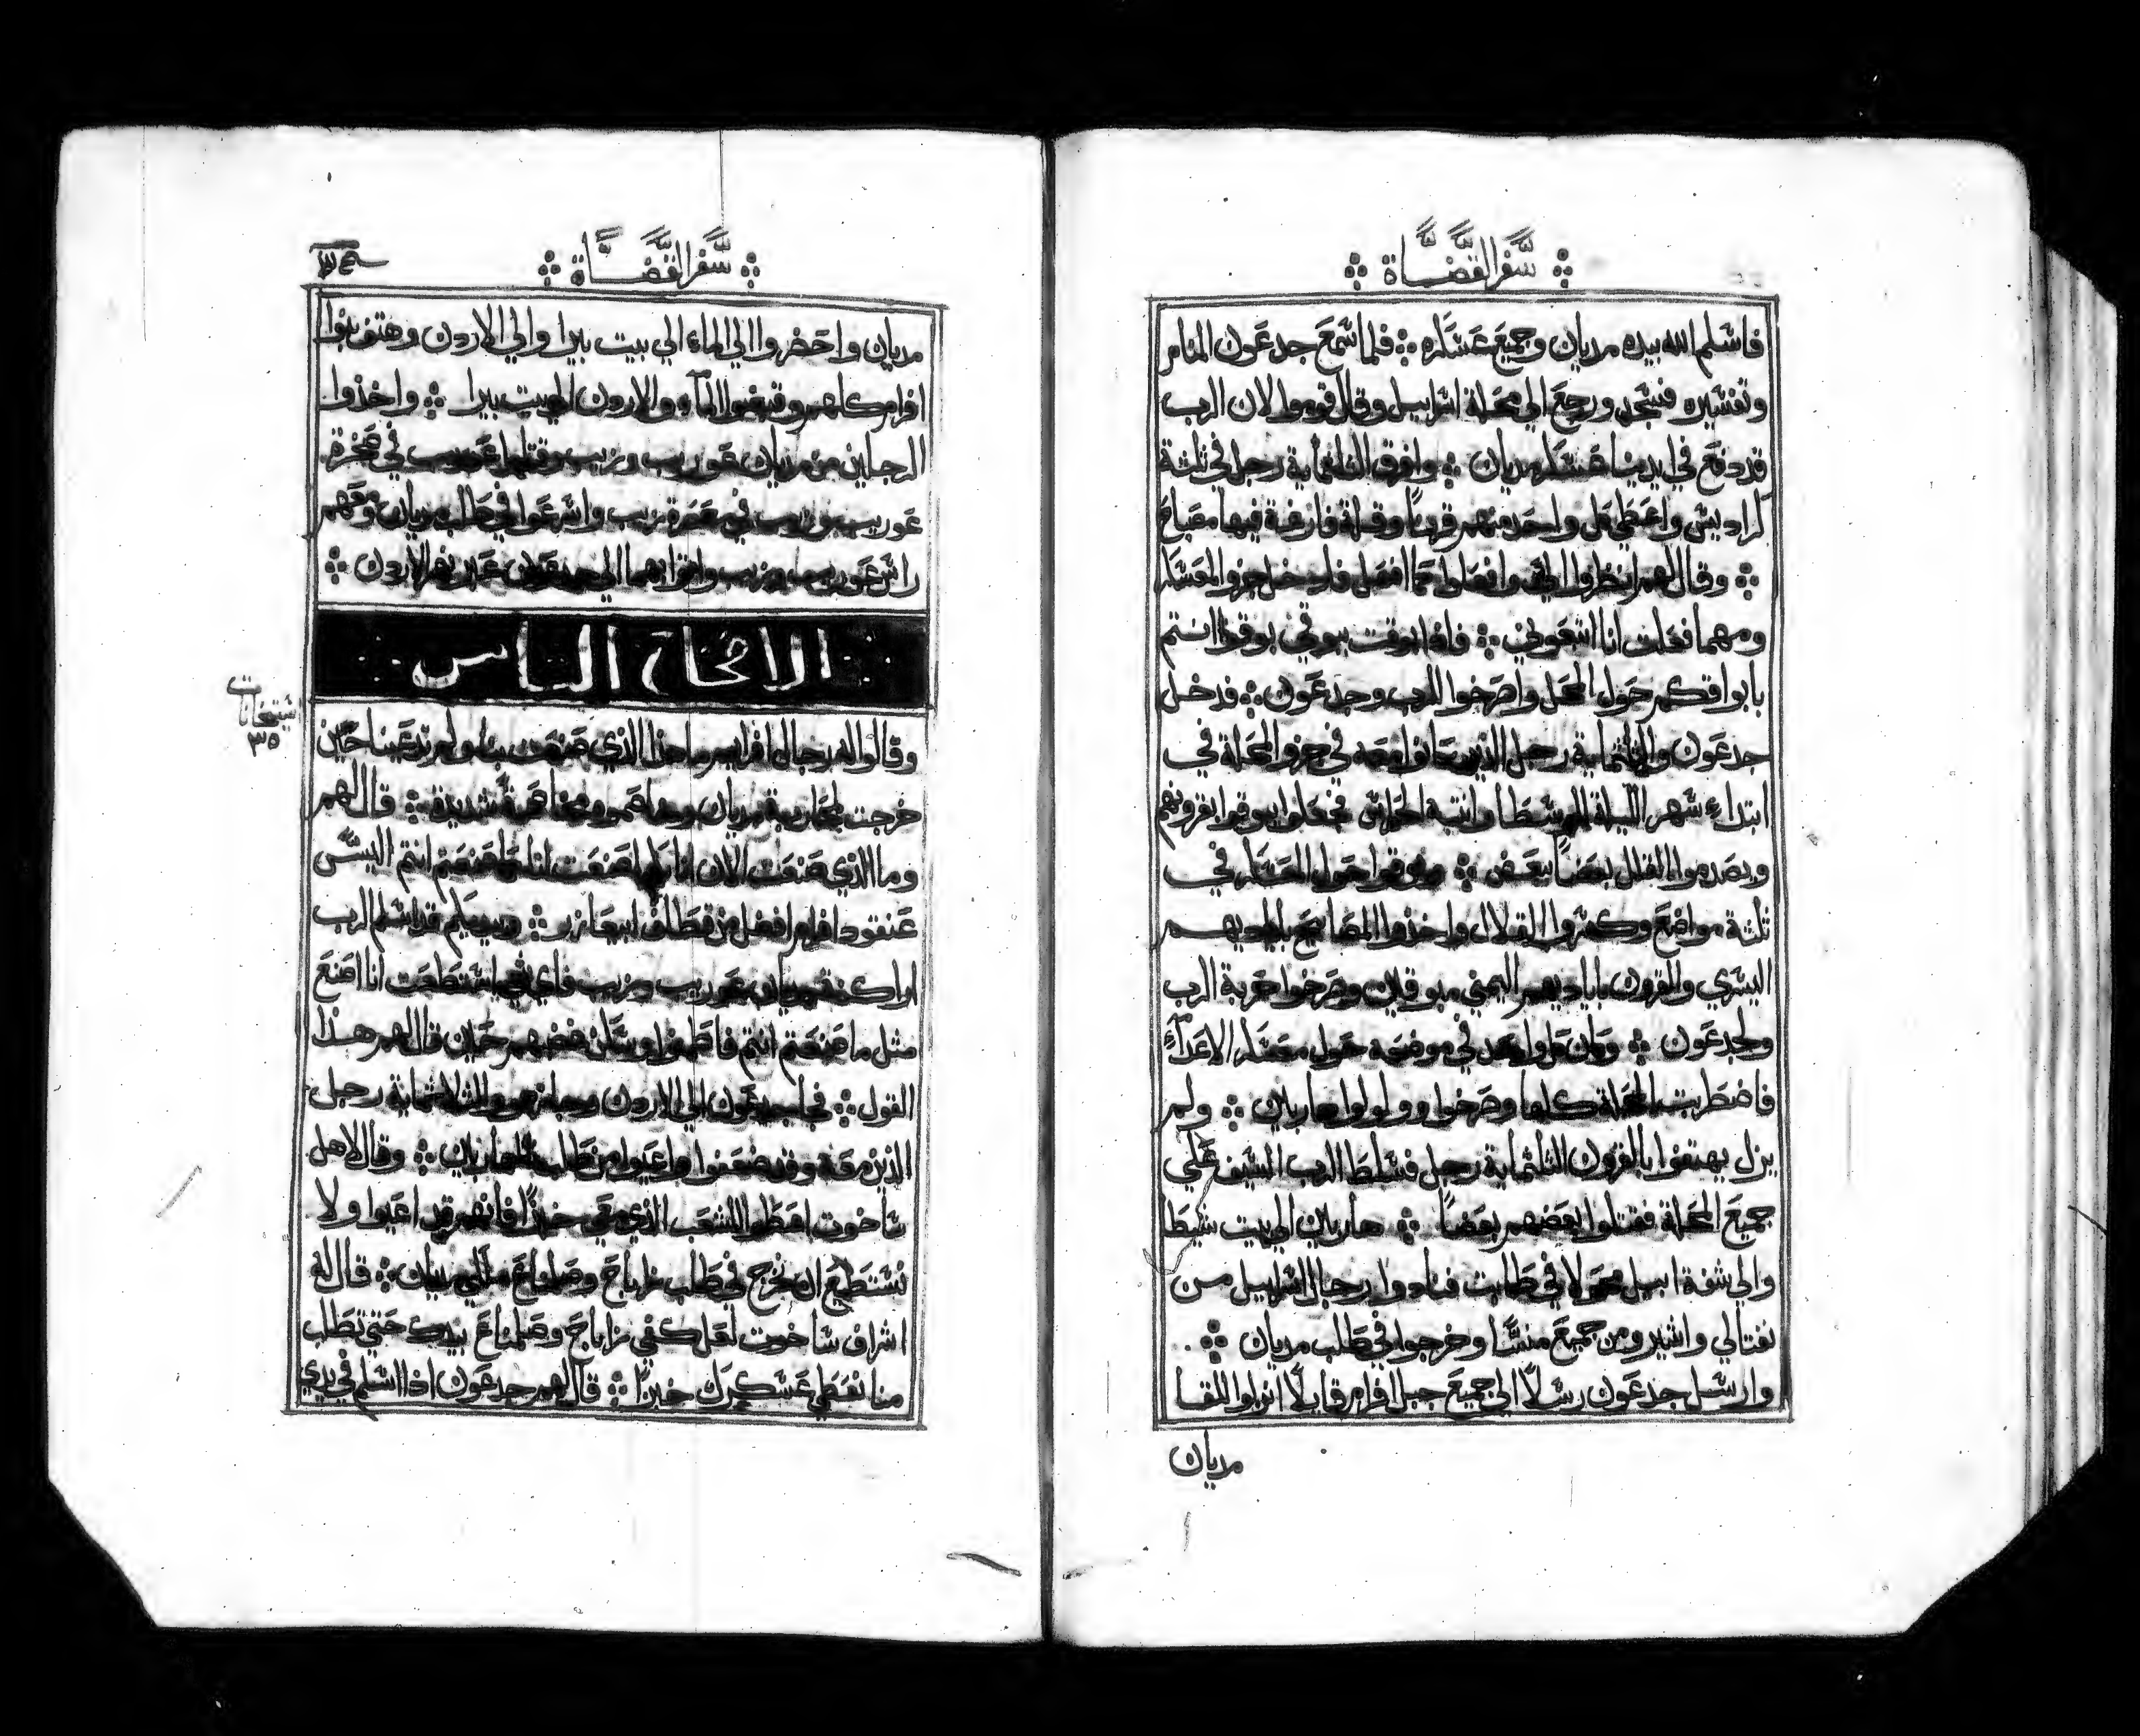 سفر القضاة
فاسلم الله بيده مديان وجميع عسكره فلما سمع جدعون المنام
وتفسيره فسجد ورجع الي محلة اسراييل وقال قوموا لان الرب
قد دفع في ايدينا عسكر مديان وافرق الثلثماية رجل في ثلثة
كراديس واعطي كل واحد منهم قرونا وقلة فارغة فيها مصباح
وقال لهم انظروا الي وافعلوا كما افعل فادخل جزو المعسكر
ومهما فعلت انا اتبعوني فاذا بوقت ببوقي بوقوا انتم
بابواقكم حول المحل واصرخوا للرب وجدعون فدخل
جدعون والثلثماية رجل الذين كانوا معه في جزو المحلة في
ابتداء سهر الليلة الوسطا وانتبه الحراس فجعلوا يبوقوا بقرونهم
ويصدموا القلل بعضا ببعض وبوقوا حول المعسكر في
ثلثة مواضع وكسروا القلال واخذوا المصابيح بايديهم
اليسري والقرون باياديهم اليمني مبوقين وصرخوا حربة الرب
ولجدعون وكان كل واحد في موضعه حول معسكر الاعداء
فاضطربت المحلة كلها وصرخوا وولولوا هاربين ولم
يزل يهتفوا بالقرون الثلثماية رجل فسلط الرب السيف علي
جميع المحلة فقتلوا بعضهم بعضا هاربين الي بيت شيطا
والي شفة ابيل محولا في طابت فنادوا رجال اسراييل من
نفتالي واشير ومن جميع منسا وخرجوا في طلب مديان
وارسل جدعون رسلا الي جميع جبل افرام قايلا انزلوا للقا
مديان
سفر القضاة
مديان واحضروا الي الماء الي بيت بيرا والي الاردن وهتف بنوا
افرام كلهم وقبضوا الماء والاردن الي بيت بيرا واخذوا
الرجلين من مديان عوريب وزيب وقتلوا عوريب في صخرة
عوريب وزيب في معصرة زيب واسرعوا في طلب مديان ومعهم
راس عوريب وزيب واتوا بهما الي جدعون عبر نهر الاردن
الاصحاح الثامن
٣٥
وقالوا له رجال افرايم ما هذا الذي صنعت بنا ولم تدعينا حين
خرجت لمحاربة مديان وخاصموه مخاصمة شديدة قال لهم
وما الذي صنعت الان انا كما صنعتم انتم اليس
عنقود افرام افضل من قطاف ابيعازر وبيديكم قد اسلم الرب
اراكنة مديان عوريب وزيب فاي شي استطعت انا اصنع
مثل ما صنعتم انتم فاطفوا وسكن غضبهم حين قال لهم هذا
القول فجا جدعون الي الاردن وجاز هو والثلاثماية رجل
الذين معه وقد ضعفوا واعيوا من طلب الهاربين وقال لاهل
ساخوت اعطوا الشعب الذي معي خبزا فانهم قد اعيوا ولا
نستطيع ان نخرج في طلب زاباح وصلمناع ملكي مديان قال له
اشراف ساخوت لعل كفي زاباح وصلمناع بيدك حتي تطلب
منا نعطي عسكرك خبزا قال لهم جدعون اذا اسلم في يدي